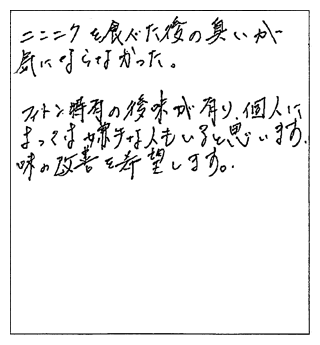 ニンニクを食べた後の臭いが
気にならなかった。
フィトン特有の後味が有り、個人に
よっては苦手な人もいると思います、
味の改善を希望します。